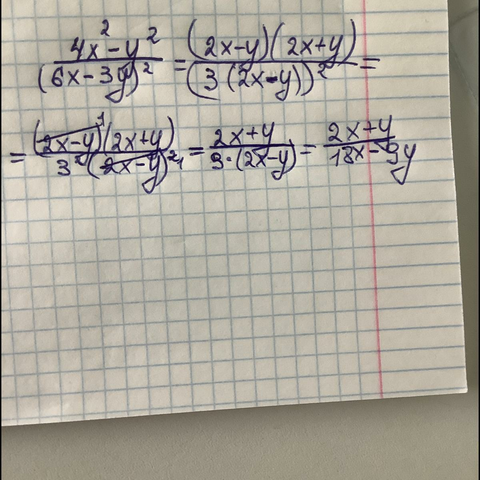 (4x² - y²)/(6x - 3y)² = ((2x-y)(2x+y))/(3(2x-y))² =
= ((2x-y)¹(2x+y))/(3²(2x-y)²₁) = (2x+y)/(9·(2x-y)) = (2x+y)/(18x - 9y)